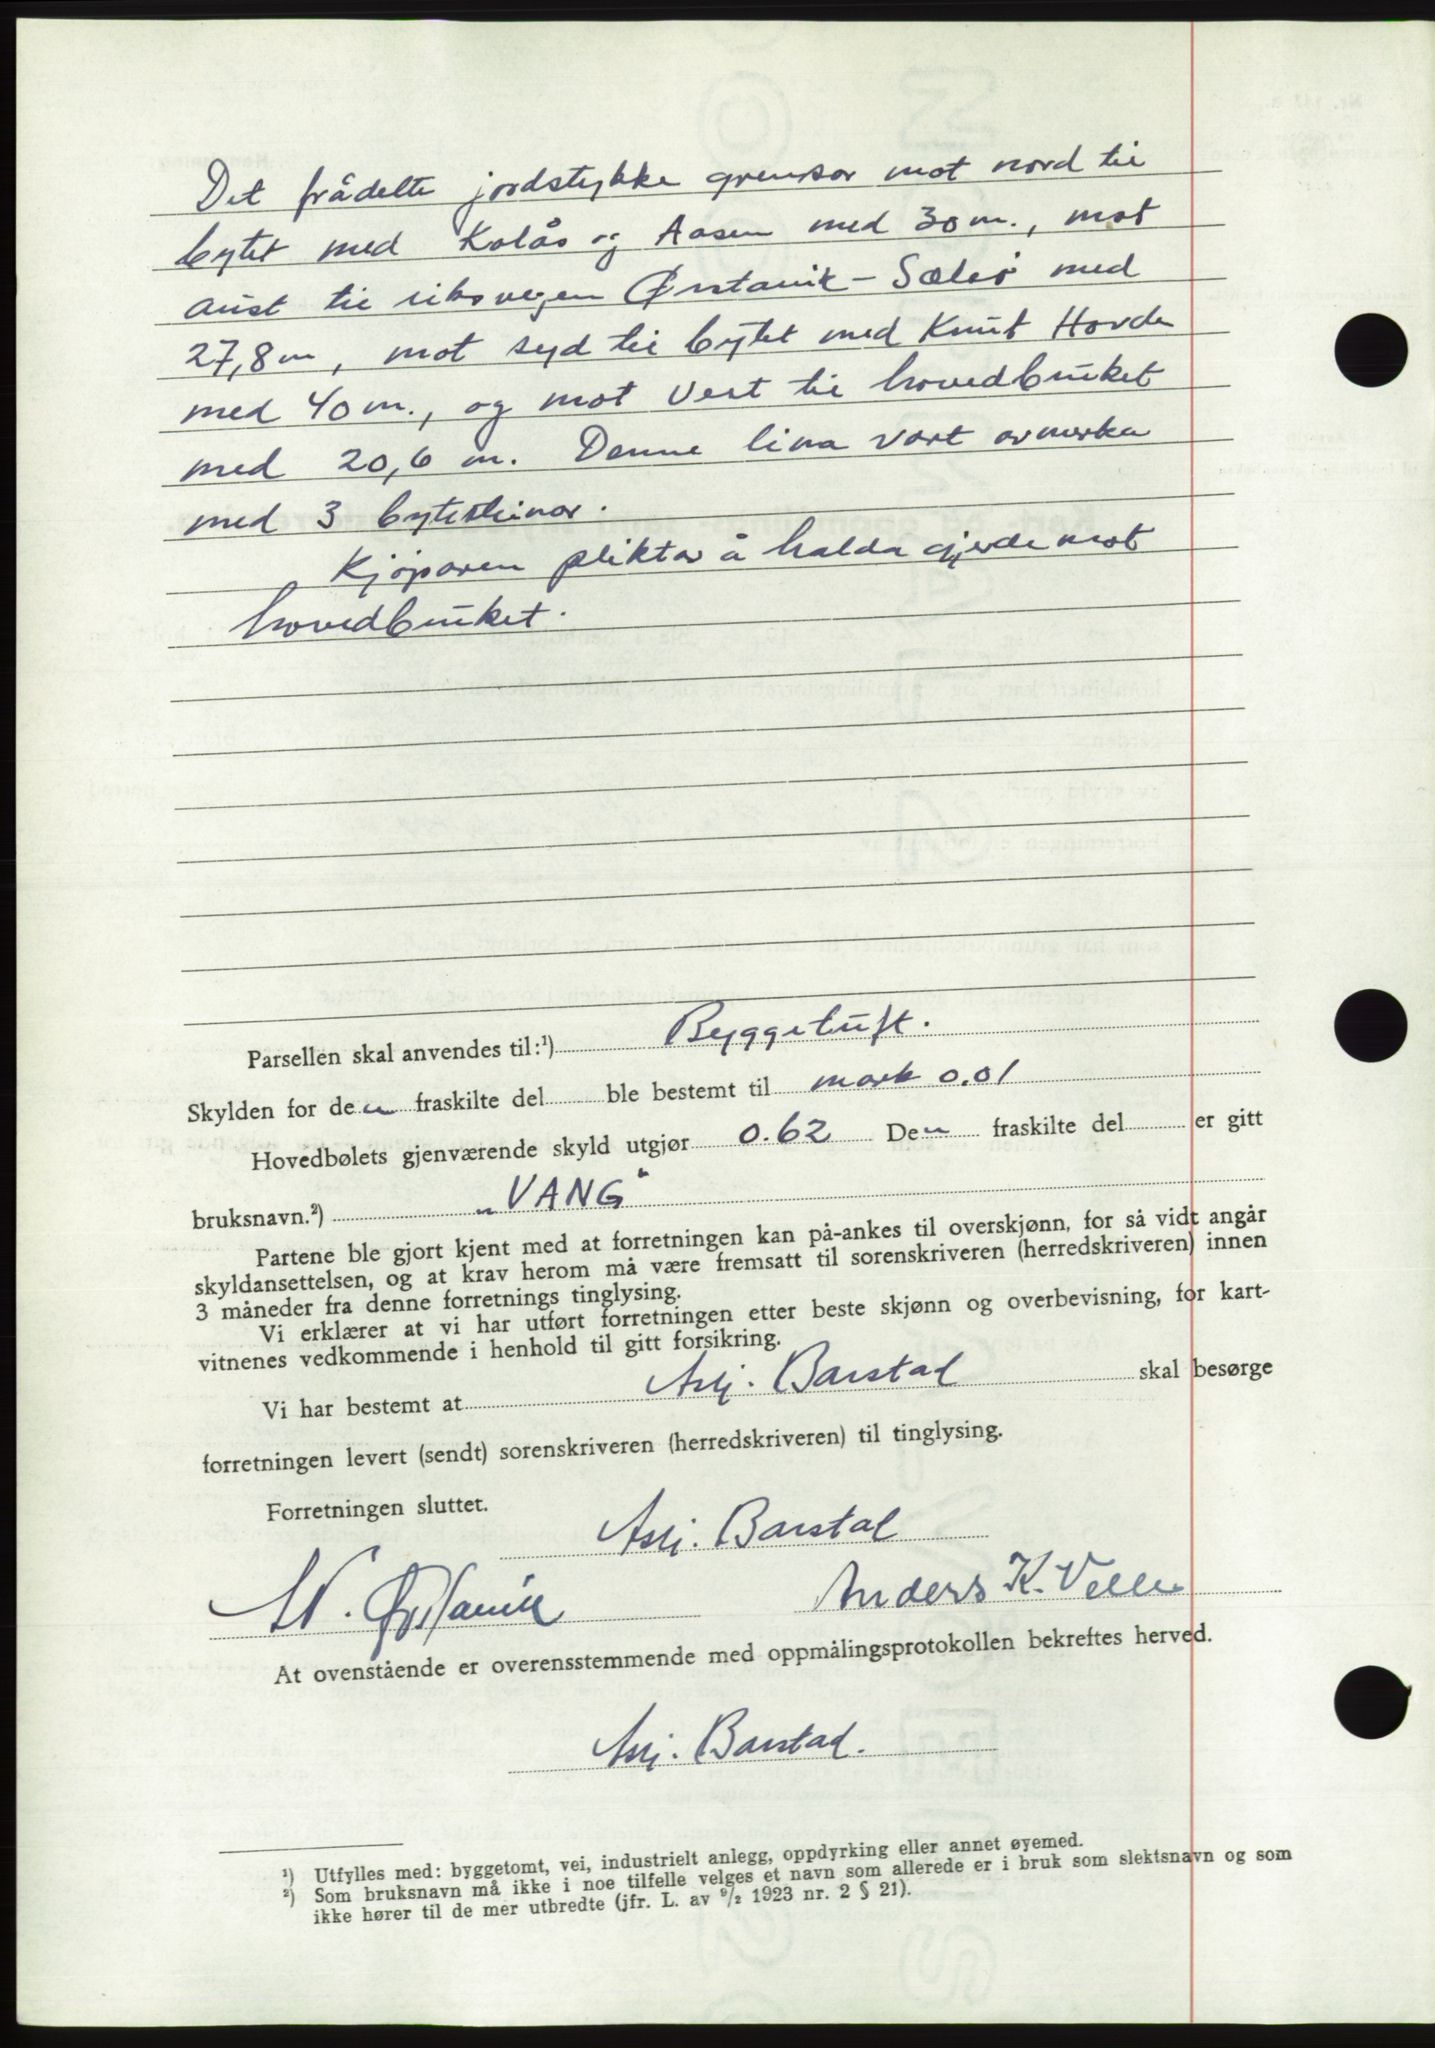 Det frådelte jordstykke grensar mot nord til
bytet med Kolås og Aasen med 30 m., mot
aust til riksvegen Ørstavik - Sæbø med
27,8 m, mot syd til bytet med Knut Hovde
med 40 m., og mot vest til hovedbruket
med 20,6 m. Denne lina vart avmerka
med 3 bytesteinar.
Kjøparen pliktar å halda gjerde mot
hovedbruket.
Parsellen skal anvendes til:¹) Byggetuft.
Skylden for den fraskilte del ble bestemt til mark 0.01
Hovedbølets gjenværende skyld utgjør 0.62 Den fraskilte del er gitt
bruksnavn.²) „VANG"
Partene ble gjort kjent med at forretningen kan på-ankes til overskjønn, for så vidt angår
skyldansettelsen, og at krav herom må være fremsatt til sorenskriveren (herredskriveren) innen
3 måneder fra denne forretnings tinglysing.
Vi erklærer at vi har utført forretningen etter beste skjønn og overbevisning, for kart-
vitnenes vedkommende i henhold til gitt forsikring.
Vi har bestemt at Aslj. Barstad skal besørge
forretningen levert (sendt) sorenskriveren (herredskriveren) til tinglysing.
Forretningen sluttet.
Aslj. Barstad
Ørstavik Anders K. Velle
At ovenstående er overensstemmende med oppmålingsprotokollen bekreftes herved.
Aslj. Barstad.
¹) Utfylles med: byggetomt, vei, industrielt anlegg, oppdyrking eller annet øyemed.
²) Som bruksnavn må ikke i noe tilfelle velges et navn som allerede er i bruk som slektsnavn og som
ikke hører til de mer utbredte (jfr. L. av 9/2 1923 nr. 2 § 21).